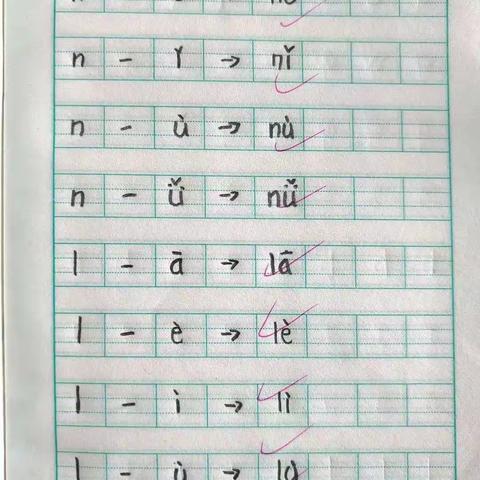 n - ǐ → nǐ
n - ù → nù
n - ǚ → nǚ
l - ā → lā
l - è → lè
l - ì → lì
l - ù → lù